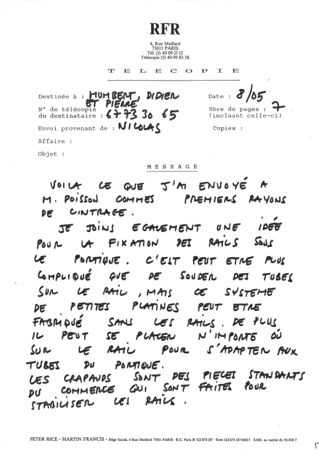 RFR
4, Rue Maillard
75011 PARIS
Tél (1) 40 09 21 12
Télécopie (1) 40 09 83 38
TELECOPIE
Destinée à : HUMBERT, DIDIER ET PIERRE
Date : 8/05
N° de télécopie du destinataire : 67 73 30 65
Nbre de pages : 7
(incluant celle-ci)
Envoi provenant de : NICOLAS
Copies :
Affaire :
Objet :
MESSAGE
VOILA CE QUE J'AI ENVOYÉ A
M. POISSON COMMES PREMIERS RAYONS
DE CINTRAGE.
JE JOINS EGALEMENT UNE IDÉE
POUR LA FIXATION DES RAILS SOUS
LE PORTIQUE. C'ELT PEUT ETRE PLUS
COMPLIQUÉ QUE DE SOUDER DES TUBES
SUR LE RAIL, MAIS CE SYSTEME
DE PETITES PLATINES PEUT ETRE
FABRIQUÉ SANS LES RAILS. DE PLUS
IL PEUT SE PLACER N'IMPORTE OÙ
SUR LE RAIL POUR S'ADAPTER AUX
TUBES DU PORTIQUE.
LES CRAPAUDS SONT DES PIECES STANDARTS
DU COMMERCE QUI SONT FAITES POUR
STABILISER LES RAILS.
PETER RICE - MARTIN FRANCIS - Siège Social, 4 Rue Maillard 75011 Paris